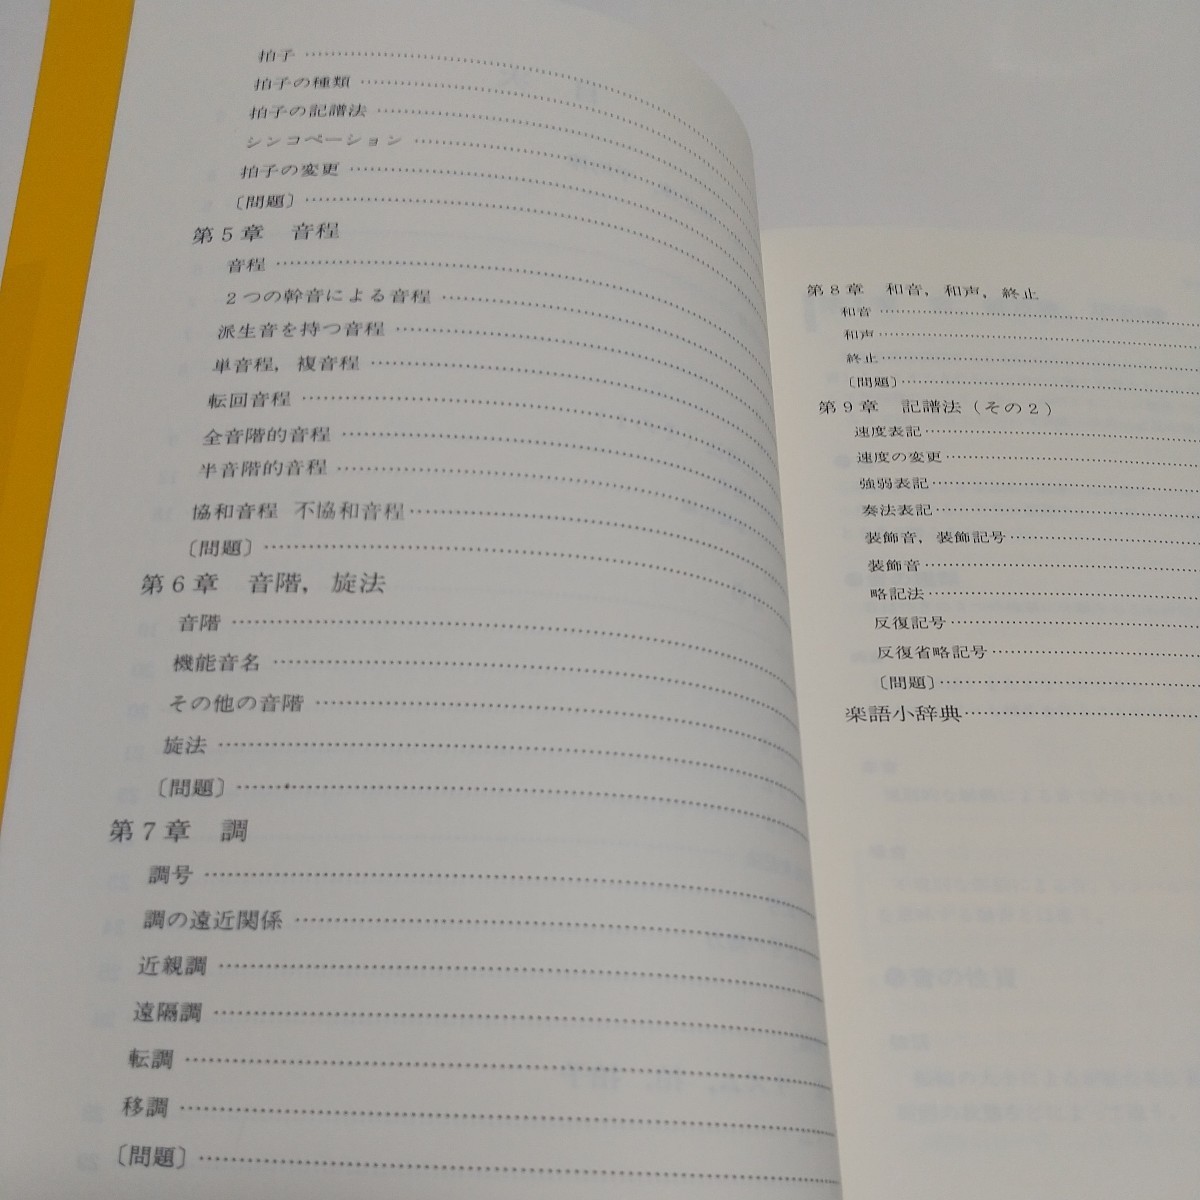 拍子
拍子の種類
拍子の記譜法
シンコペーション
拍子の変更
〔問題〕
第5章　音程
音程
2つの幹音による音程
派生音を持つ音程
単音程，複音程
転回音程
全音階的音程
半音階的音程
協和音程　不協和音程
〔問題〕
第6章　音階，旋法
音階
機能音名
その他の音階
旋法
〔問題〕
第7章　調
調号
調の遠近関係
近親調
遠隔調
転調
移調
〔問題〕
第8章　和音，和声，終止
和音
和声
終止
〔問題〕
第9章　記譜法（その2）
速度表記
速度の変更
強弱表記
奏法表記
装飾音，装飾記号
装飾音
略記法
反復記号
反復省略記号
〔問題〕
楽語小辞典